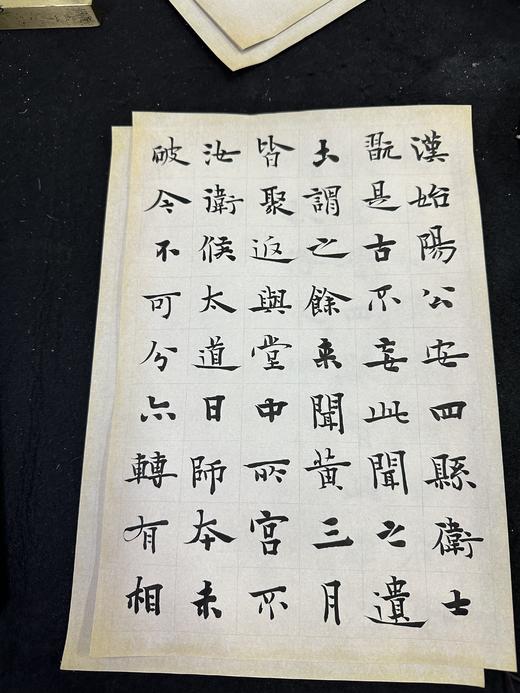 漢始陽公安四縣衛士
翫是古不妄此聞之遺
土謂之餘来聞黄三月
皆聚返與堂中所宮不
汝衛候太道日師本未
破今不可分六轉有相